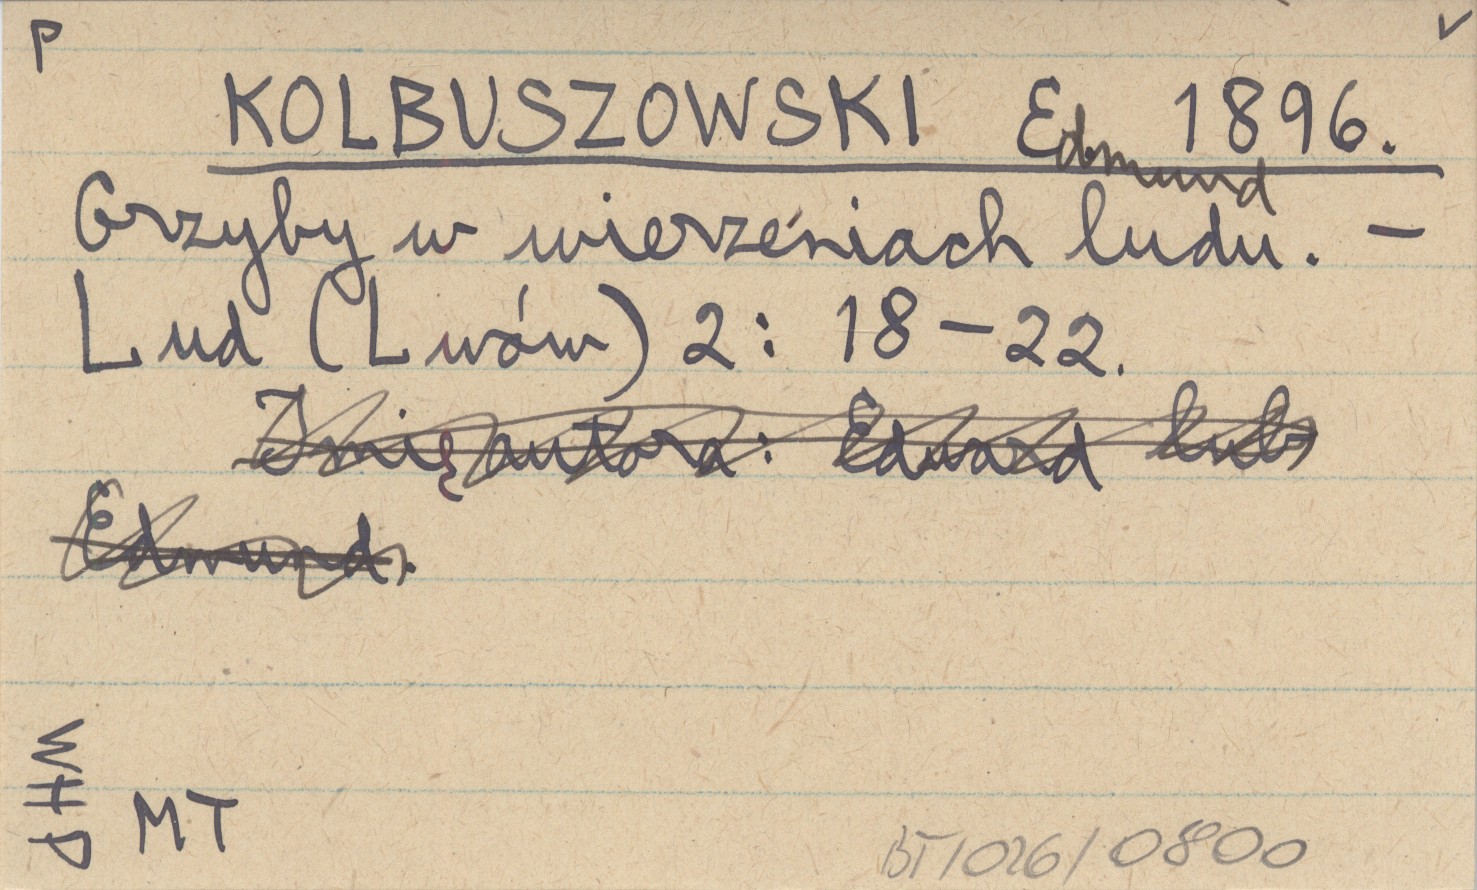 P V
KOLBUSZOWSKI Edmund 1896.
Grzyby w wierzeniach ludu. –
Lud (Lwów) 2: 18–22.
Imię autora: Edward lub
Edmund.
WHP
MT
BT/026/0800